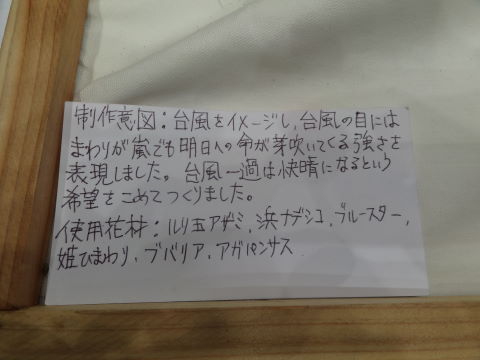 制作意図：台風をイメージし、台風の目には
まわりが嵐でも明日への命が芽吹いてくる強さを
表現しました。台風一過は快晴になるという
希望をこめてつくりました。
使用花材：ルリ玉アザミ、浜ナデシコ、ブルースター、
姫ひまわり、ブバリア、アガパンサス